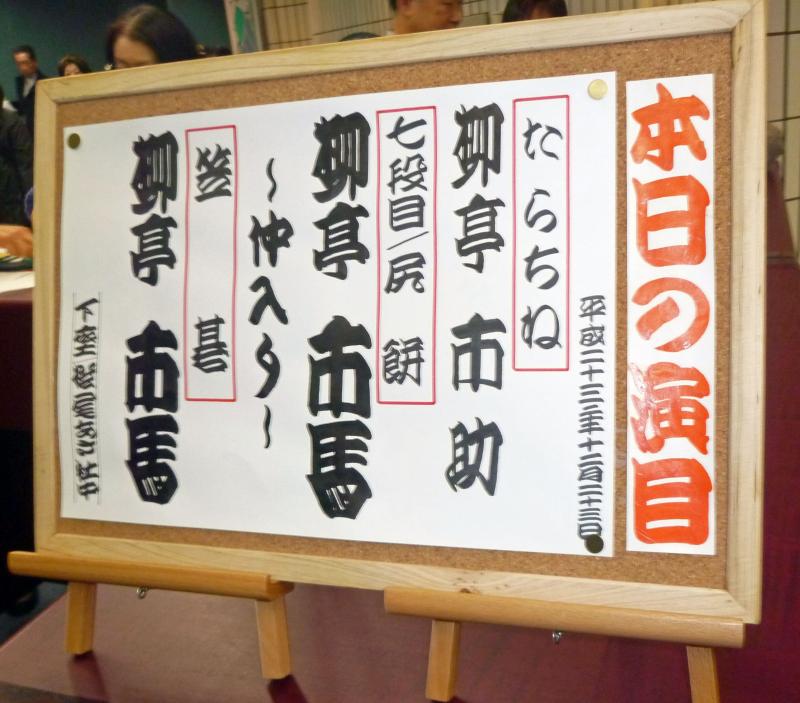 本日の演目
平成二十三年十二月二十三日
たらちね
柳亭 市助
七段目/尻餅
柳亭 市馬
～仲入り～
笠碁
柳亭 市馬